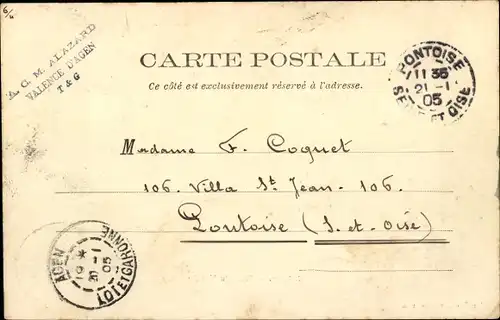 6/4
A. C. M. ALAZARD
VALENCE D'AGEN
T & G
CARTE POSTALE
Ce côté est exclusivement réservé à l'adresse.
PONTOISE
11 35
21 - 1
05
SEINE ET OISE
Madame F. Coquet
106. Villa St Jean - 106.
Pontoise (S. et. Oise)
AGEN
19 *
20 - 1
05
LOT ET GARONNE